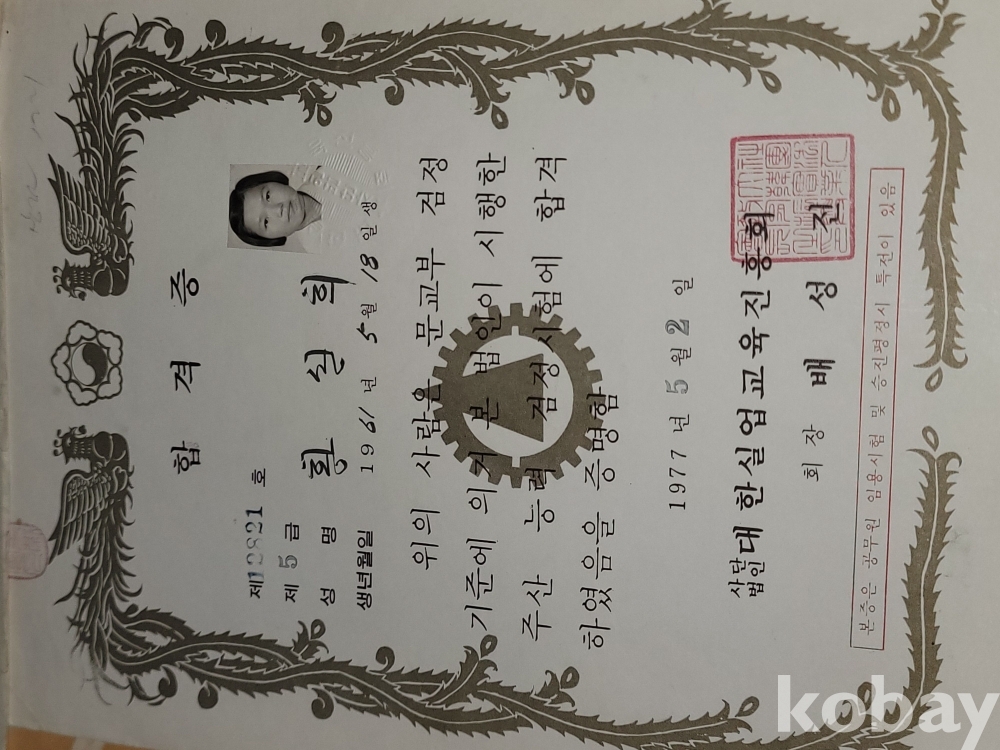 합격증
제12821호
제 5 급
성 명 황 실 희
생년월일 1961년 5월 18일생
위의 사람은 문교부 검정
기준에 의거 본 법인이 시행한
주산 능력 검정시험에 합격
하였음을 증명함
1977년 5월 2일
사단법인 대한실업교육진흥회
회장 배성진
본증은 공무원 임용시험 및 승진평정시 특전이 있음
kobay